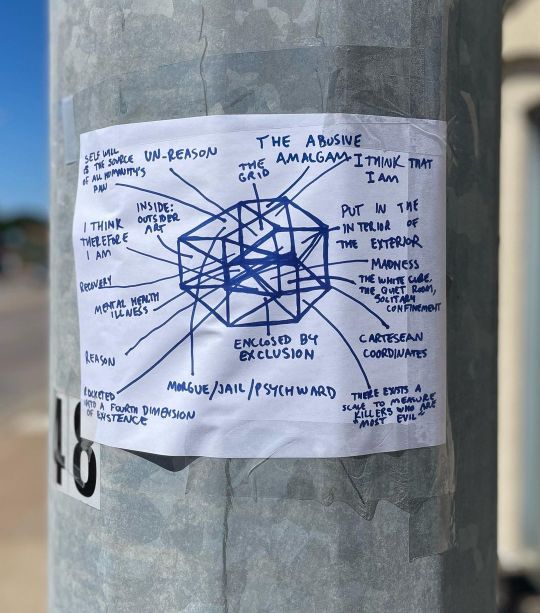 THE ABUSIVE
AMALGAM
SELF WILL
IS THE SOURCE
OF ALL HUMANITY'S
PAIN
UN-REASON
THE
GRID
I THINK THAT
I AM
INSIDE:
OUTSIDER
ART
PUT IN THE
INTERIOR OF
THE EXTERIOR
I THINK
THEREFORE
I AM
MADNESS
RECOVERY
THE WHITE CUBE,
THE QUIET ROOM,
SOLITARY
CONFINEMENT
MENTAL HEALTH
ILLNESS
CARTESEAN
COORDINATES
ENCLOSED BY
EXCLUSION
REASON
MORGUE/JAIL/PSYCHWARD
ROCKETED
INTO A FOURTH DIMENSION
OF EXISTENCE
THERE EXISTS A
SCALE TO MEASURE
KILLERS WHO ARE
"MOST EVIL"
48